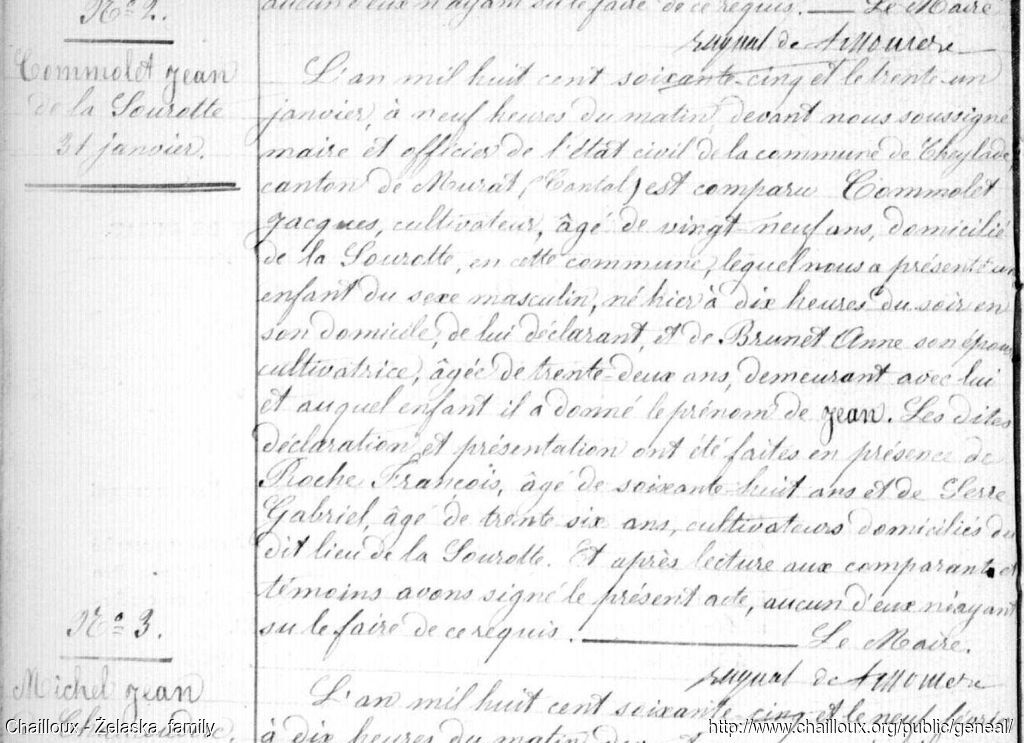 No 2.
aucun d'eux n'ayant su le faire de ce requis. — Le Maire
Commolet Jean
de la Sourotte
31 janvier.
L'an mil huit cent soixante-cinq et le trente-un
janvier, à neuf heures du matin, devant nous soussigné
maire et officier de l'état civil de la commune de Cheylade,
canton de Murat, (Cantal) est comparu Commolet
Jacques, cultivateur, âgé de vingt-neuf ans, domicilié
de la Sourotte, en cette commune, lequel nous a présenté un
enfant du sexe masculin, né hier à dix heures du soir en
son domicile, de lui déclarant, et de Brunet Anne son épouse
cultivatrice, âgée de trente-deux ans, demeurant avec lui
et auquel enfant il a donné le prénom de Jean. Les dites
déclaration et présentation ont été faites en présence de
Roche François, âgé de soixante-huit ans et de Serre
Gabriel, âgé de trente six ans, cultivateurs domiciliés du
dit lieu de la Sourotte. Et après lecture aux comparants et
témoins avons signé le présent acte, aucun d'eux n'éayant
su le faire de ce requis. — Le Maire.
No 3.
Michel Jean
L'an mil huit cent soixante-cinq et le neuf
à dix heures du matin
Chailloux - Żelaska family
http://www.chailloux.org/public/geneal/